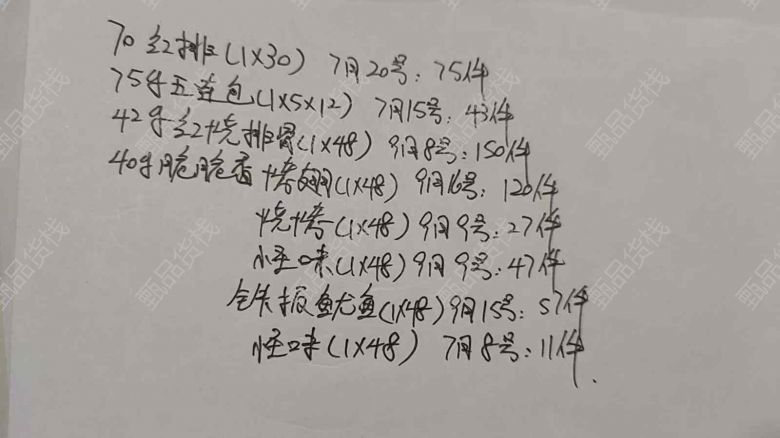 70红排(1×30) 7月20号: 75件
75g五连包(1×5×12) 7月15号: 43件
42g红烧排骨(1×48) 9月8号: 150件
40g脆脆香 烤翅(1×48) 9月16号: 120件
烧烤(1×48) 9月9号: 27件
怪味(1×48) 9月9号: 47件
铁板鱿鱼(1×48) 9月15号: 57件
怪味(1×48) 7月8号: 11件.
甄品货栈